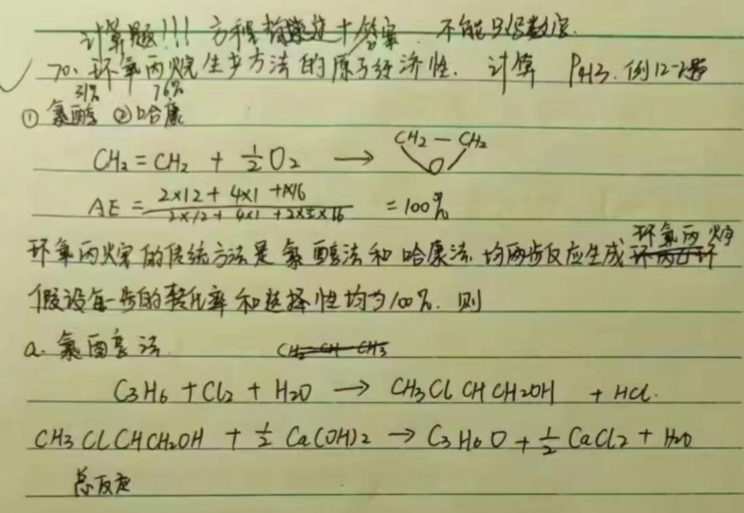 计算题!!! 方程 描述 + 答案. 不能只写数字.
70. 环氧丙烷生产方法的原子经济性. 计算 P413. 例12-2题
31% 76%
① 氯醇 ② 哈康
CH₂=CH₂ + ½O₂ ⟶ CH₂—CH₂ O
AE = (2×12+4×1+1×16)/(2×12+4×1+2×½×16) = 100%
环氧丙烷的传统方法是氯醇法和哈康法. 均两步反应生成环氧丙烷
假设每一步的转化率和选择性均为100%. 则
a. 氯醇法 CH₂=CH-CH₃
C₃H₆ + Cl₂ + H₂O ⟶ CH₃ClCHCH₂OH + HCl.
CH₃ClCHCH₂OH + ½Ca(OH)₂ → C₃H₆O + ½CaCl₂ + H₂O
总反应